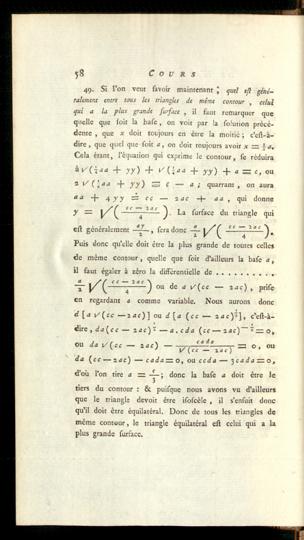 58 COURS
49. Si l'on veut savoir maintenant, quel est géné-
ralement entre tous les triangles de même contour, celui
qui a la plus grande surface, il faut remarquer que
quelle que soit la base, on voit par la solution précé-
dente, que x doit toujours en être la moitié ; c'est-à-
dire, que quel que soit a, on doit toujours avoir x = ½a.
Cela étant, l'équation qui exprime le contour, se réduira
à √(¼aa + yy) + √(¼aa + yy) + a = c, ou
2√(¼aa + yy) = c — a ; quarrant, on aura
aa + 4yy = cc — 2ac + aa, qui donne
y = √(cc — 2ac / 4). La surface du triangle qui
est généralement ay/2, sera donc a/2 √(cc — 2ac / 4).
Puis donc qu'elle doit être la plus grande de toutes celles
de même contour, quelle que soit d'ailleurs la base a,
il faut égaler à zéro la différentielle de . . . . . . . . .
a/2 √(cc — 2ac / 4) ou de a√(cc — 2ac), prise
en regardant a comme variable. Nous aurons donc
d[a√(cc — 2ac)] ou d[a (cc — 2ac)^½], c'est-à-
dire, da(cc — 2ac)^½ — a.cda (cc — 2ac)^—½ = 0,
ou da√(cc — 2ac) — cada / √(cc — 2ac) = 0, ou
da (cc — 2ac) — cada = 0, ou ccda — 3cada = 0,
d'où l'on tire a = c/3 ; donc la base a doit être le
tiers du contour : & puisque nous avons vu d'ailleurs
que le triangle devoit être isoscèle, il s'ensuit donc
qu'il doit être équilatéral. Donc de tous les triangles de
même contour, le triangle équilatéral est celui qui a la
plus grande surface.